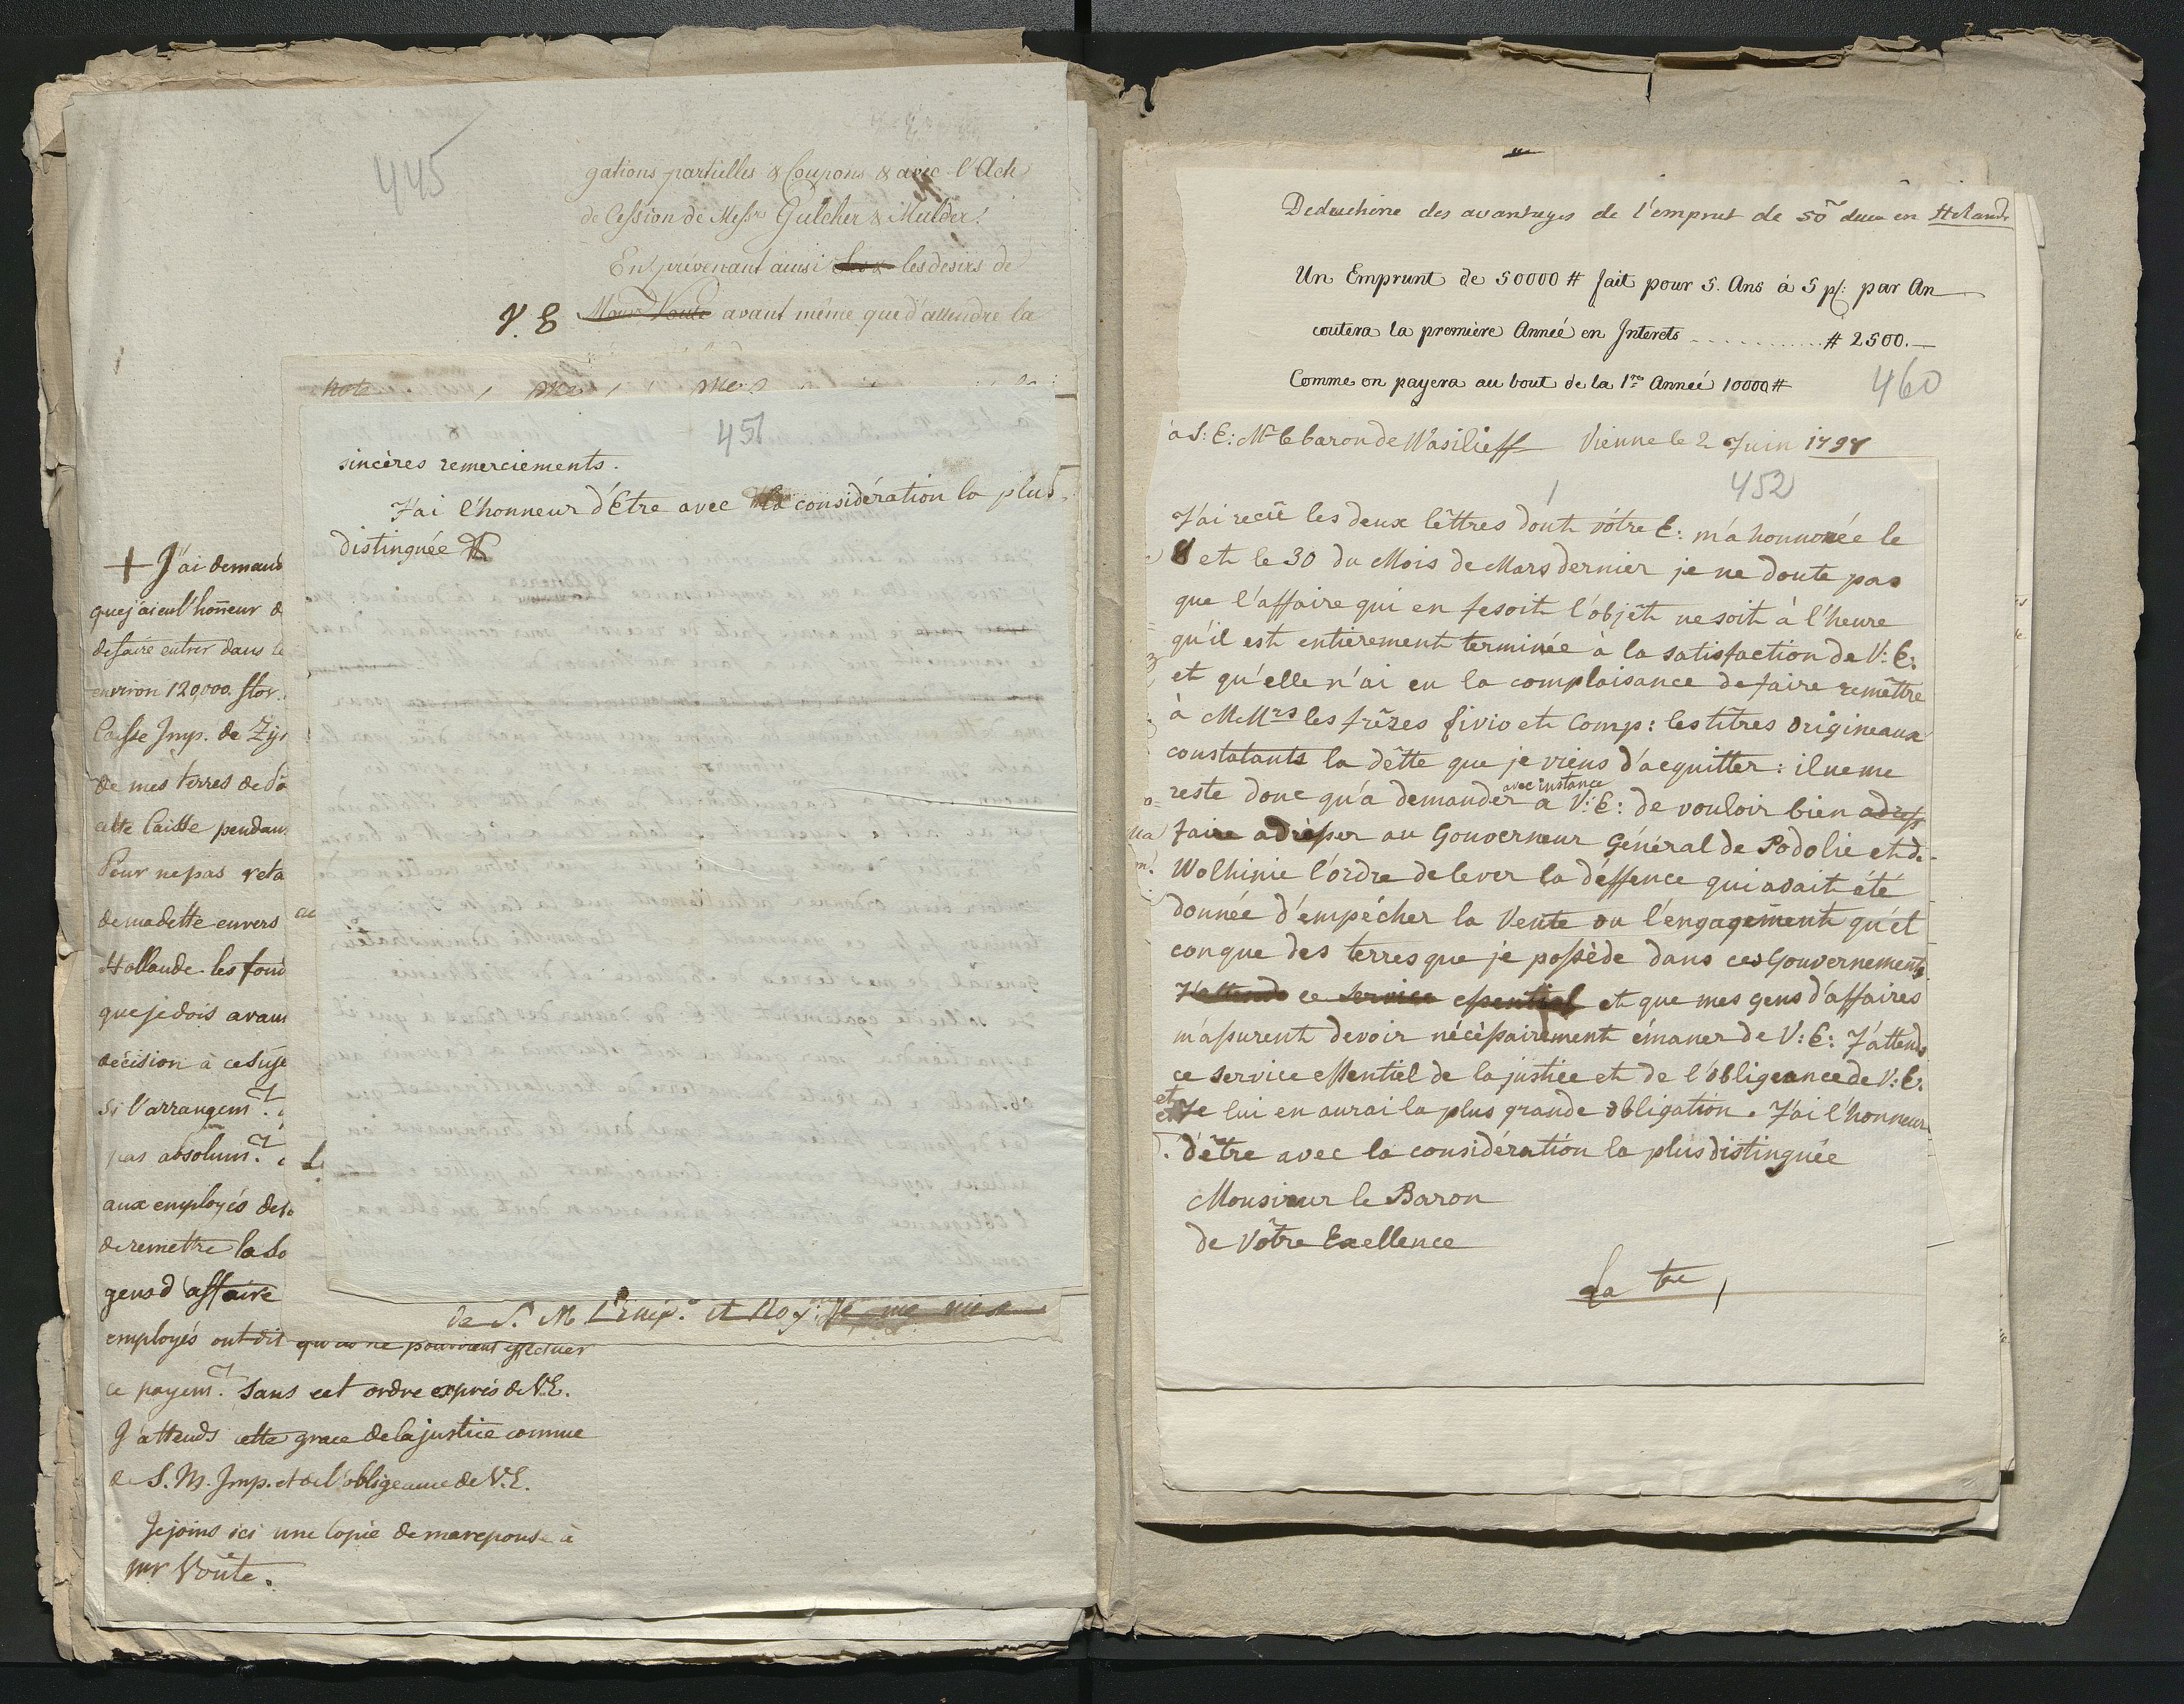 445
gations partielles & Coupons & avec l'Acte
de Cession de Mess.rs Gulcher & Mulder.
En prévenant ainsi les desirs de
V. E Mons.r Voute avant même que d'attendre la
note
451
sincères remerciements.
J'ai l'honneur d'Etre avec la considération la plus
distinguée
+ J'ai demand
que j'ai eu l'honneur d
de faire entrer dans le
environ 120,000 flor.
Caisse Imp. de Zyt
de mes terres de
cette Caisse pendan
Pour ne pas reta
de ma dette envers
Hollande les fond
que je dois avan
décision à ce suje
si l'arrangem.t
pas absolum.t
aux employés de
de remettre la so
gens d'affaire
de S. M. L'Emp.r et Roy
employés ont dit qu'on ne pourroient effectuer
ce payem.t sans cet ordre exprès de V.E.
J'attends cette grace de la justice comme
de S. M. Imp. et de l'obligeance de V.E.
Je joins ici une Copie de ma reponse à
Mr Voûte.
Deduchine des avantages de l'emprut de 50 duca en Holande
Un Emprunt de 50000 # fait pour 5. Ans à 5 p/: par An
coutera la première Année en Interets ........... # 2500.—
Comme on payera au bout de la 1re Année 10000 #
460
à S: E: Mr le baron de Wasilieff Vienne le 2 Juin 1797
452
J'ai recûe les deux lêttres dont vôtre E: m'a honnorée le
8 et le 30 du Mois de Mars dernier je ne doute pas
que l'affaire qui en fesoit l'objêt ne soit à l'heure
qu'il est entièrement terminée à la satisfaction de V: E:
et qu'elle n'ai eu la complaisance de faire remêttre
à MMrs les frêres fivio et Comp: les tîtres origineaux
constatants la dêtte que je viens d'acquitter: il ne me
reste donc qu'à demander avec instance a V: E: de vouloir bien adress
faire adresser au Gouverneur Général de Podolie et de
Wolhinie l'ordre de lever la déffence qui avait été
donnée d'empécher la Vente ou l'engagement quél
conque des terres que je possède dans ces Gouvernements
J'attends ce service essentiel et que mes gens d'affaires
m'assurent devoir nécéssairement émaner de V: E: J'attends
ce service essentiel de la justice et de l'obligeance de V: E:
et Je lui en aurai la plus grande obligation. J'ai l'honneur
d'être avec la considération la plus distinguée
Monsieur le Baron
de Vôtre Exellence
La tre